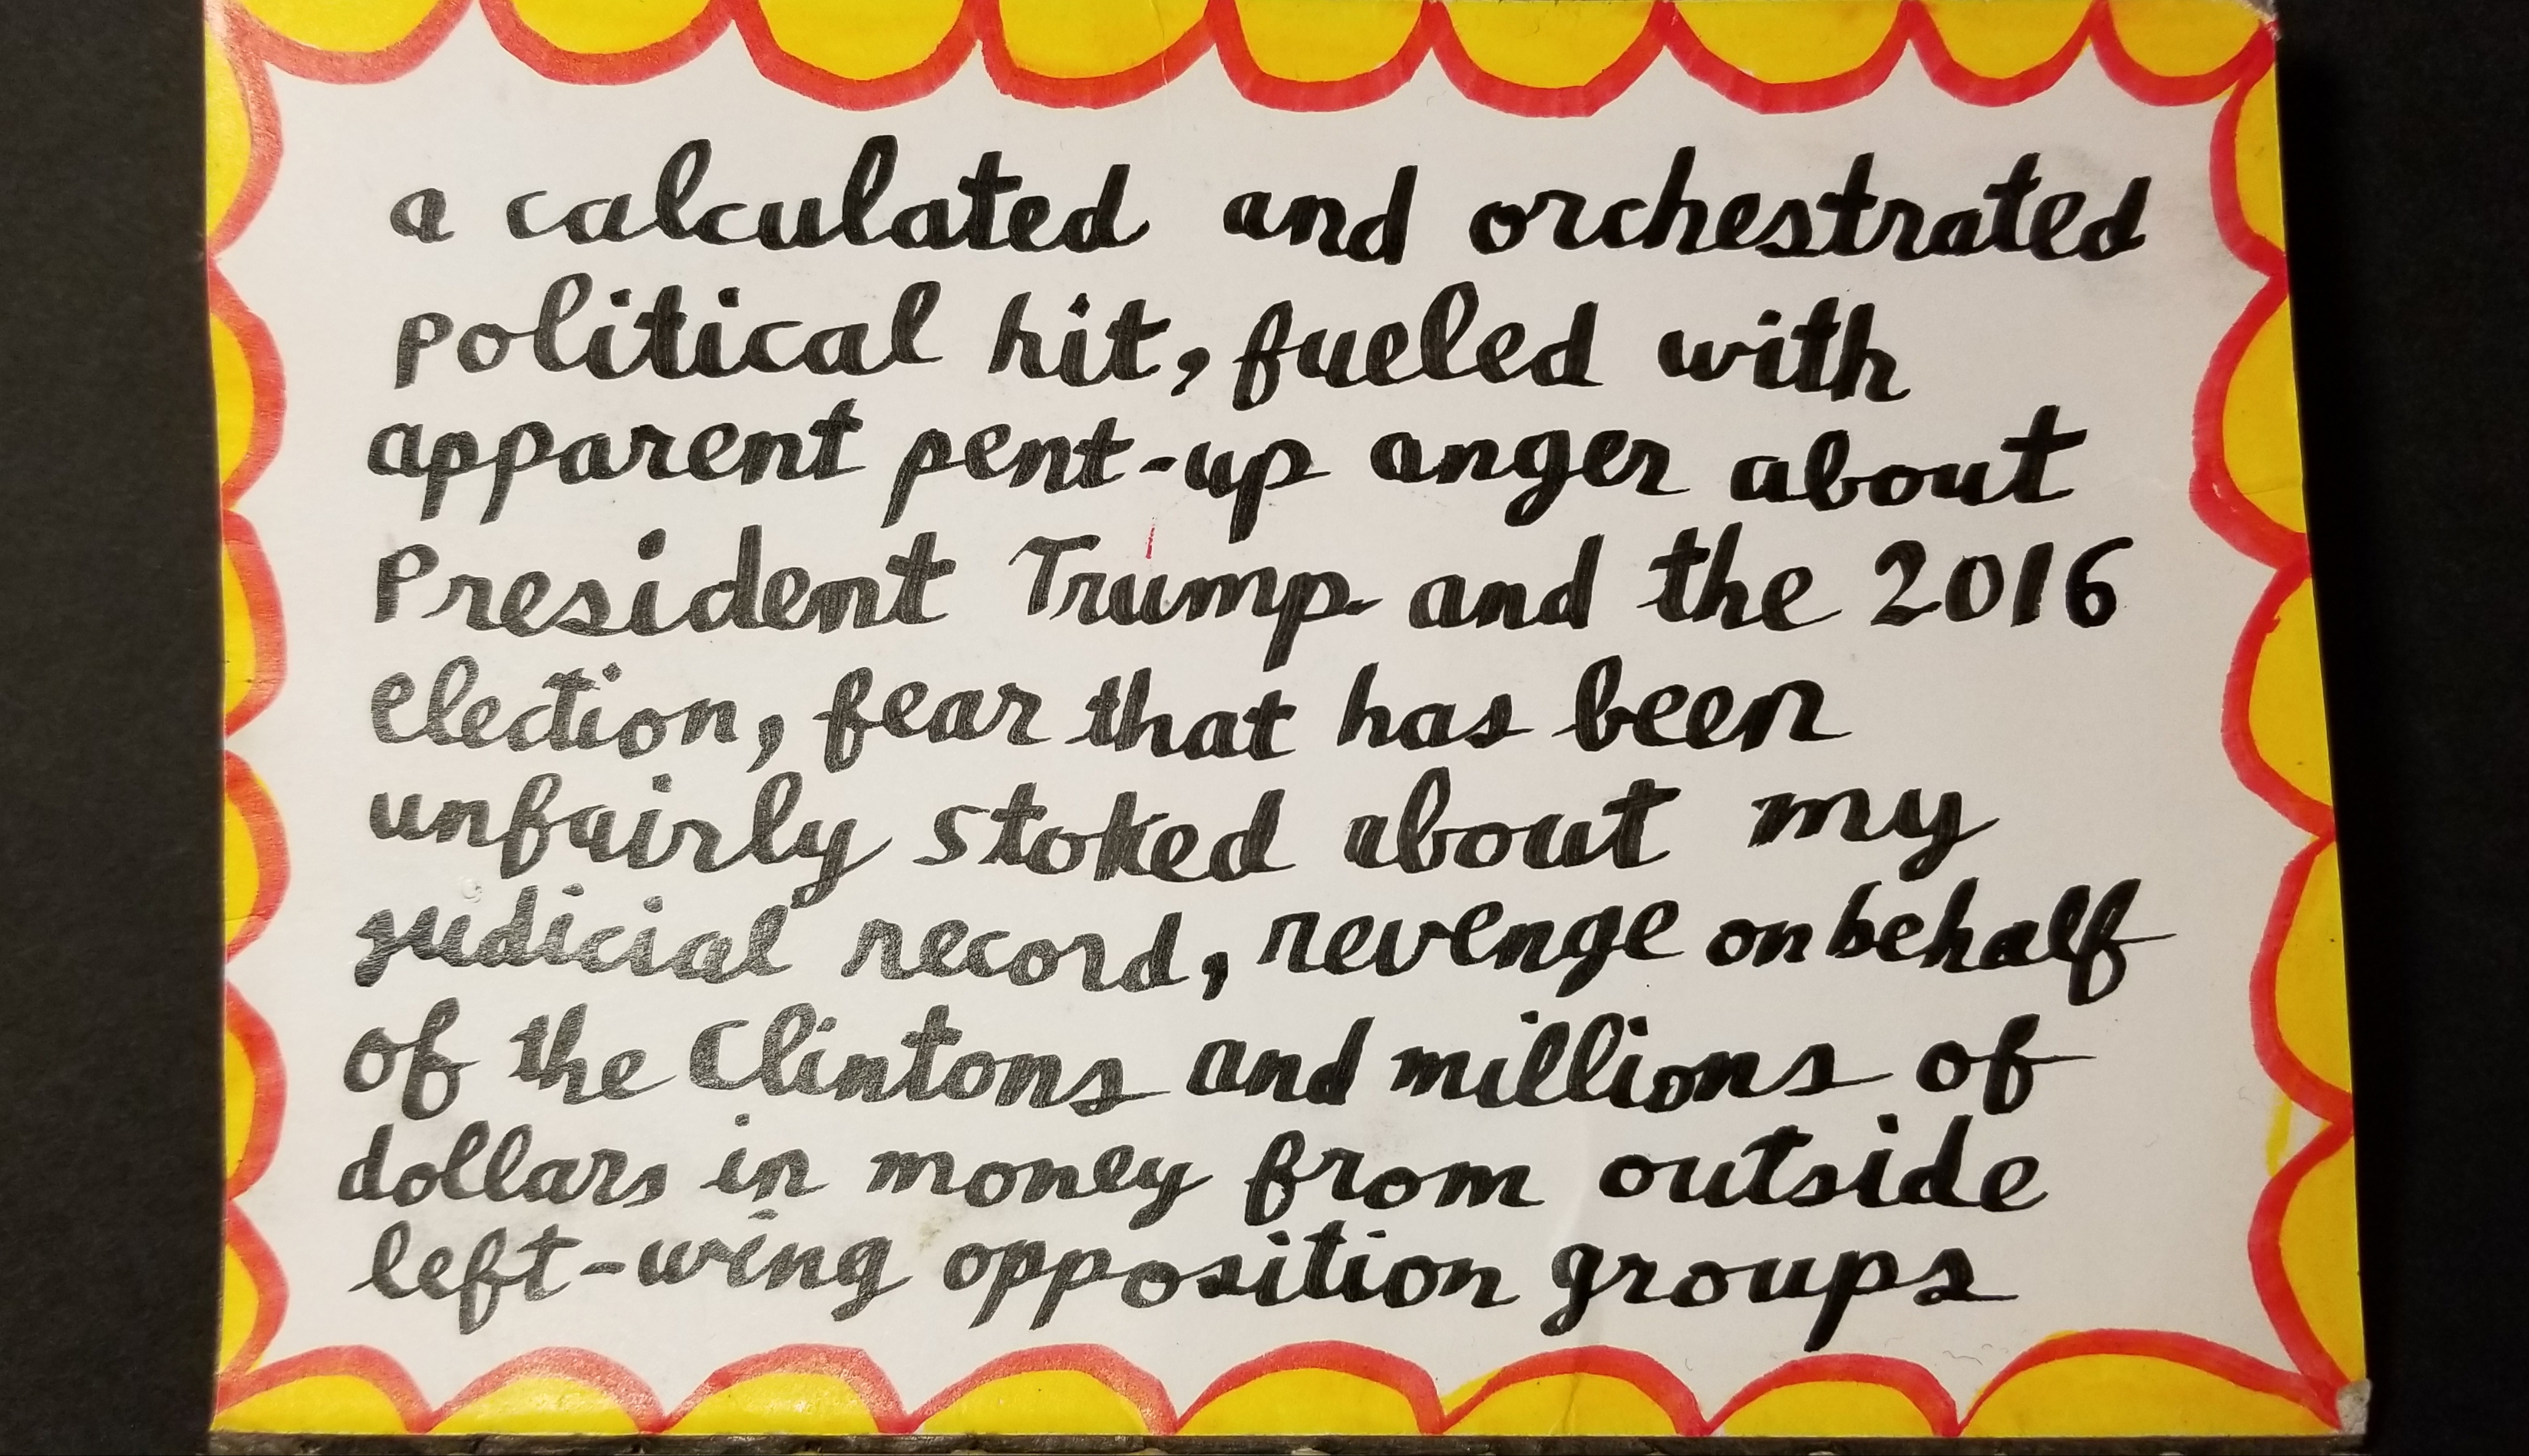 a calculated and orchestrated
political hit, fueled with
apparent pent-up anger about
President Trump and the 2016
election, fear that has been
unfairly stoked about my
judicial record, revenge on behalf
of the Clintons and millions of
dollars in money from outside
left-wing opposition groups